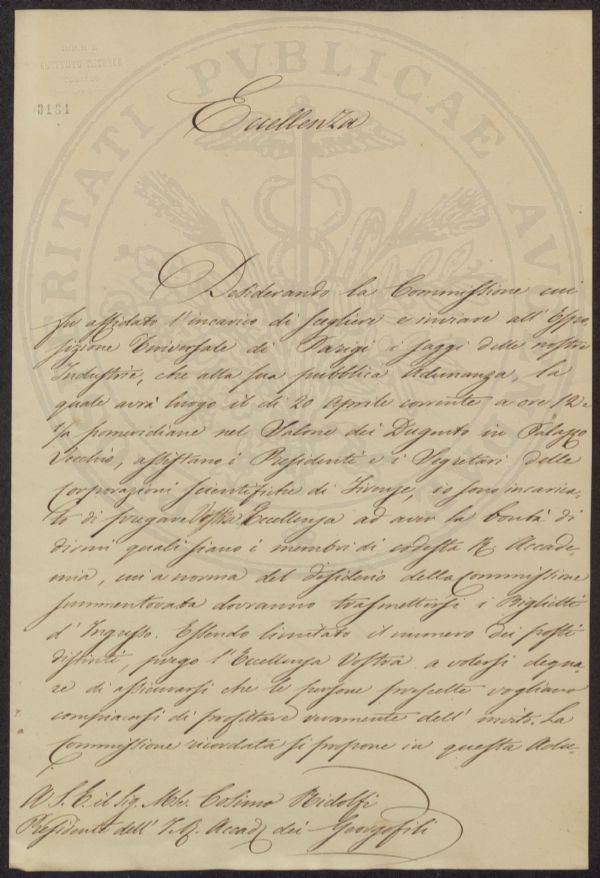 IMP. E R.
ISTITUTO TECNICO
TOSCANO
3181
PRITATI PVBLICAE AVG
Eccellenza
Desiderando la Commissione cui
fu affidato l'incarico di scegliere e inviare all'Espo-
sizione Universale di Parigi i saggi delle nostre
Industrie, che alla sua pubblica Adunanza, la
quale avrà luogo il dì 20 Aprile corrente a ore 12 e
1/2 pomeridiane nel Salone dei Dugento in Palazzo
Vecchio, assistano i Presidenti e i Segretari delle
Corporazioni scientifiche di Firenze, io sono incarica-
to di pregare Vostra Eccellenza ad aver la bontà di
dirmi quali siano i membri di codesta R. Accade-
mia, cui a norma del desiderio della Commissione
summentovata dovranno trasmettersi i Biglietti
d'Ingresso. Essendo limitato il numero dei posti
distinti, prego l'Eccellenza Vostra a volersi degna-
re di assicurarsi che le persone prescelte vogliano
compiacersi di profittare veramente dell'invito. La
Commissione ricordata si propone in questa Adu-
A S. E. il Sig. Mse. Cosimo Ridolfi
Presidente dell'I. R. Accad. dei Georgofili